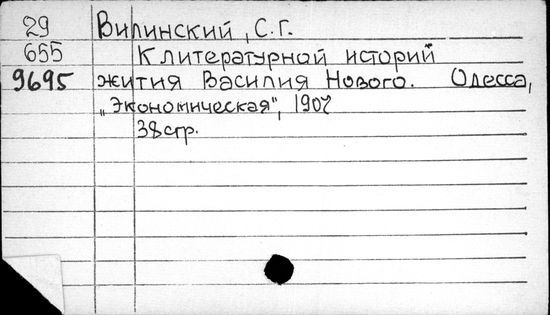 29 Вилинский, С.Г.
655 К литературной историй
9695 жития Василия Нового. Одесса,
„Экономическая", 1907
38стр.